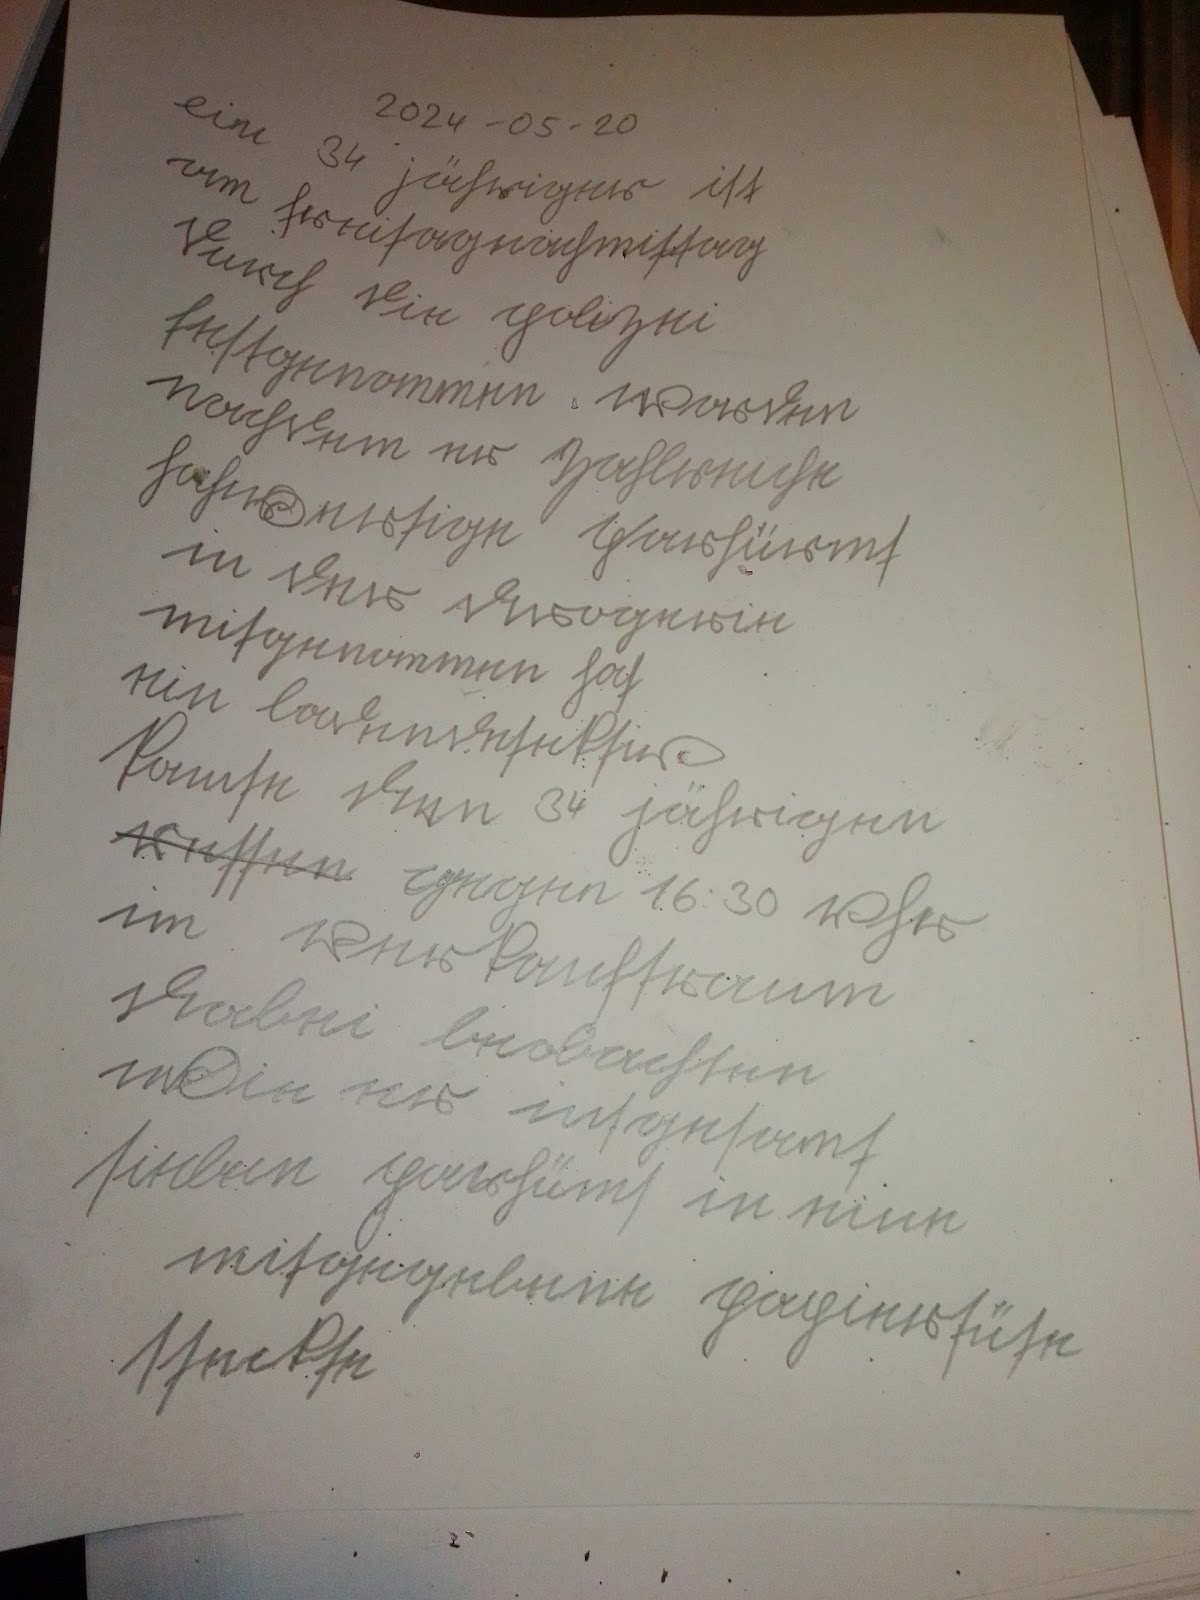 2024-05-20
ein 34 jähriger ist
am freitagnachmittag
durch die polizei
festgenommen worden
nachdem er zahlreiche
hochwertige parfüms
in der drogerie
mitgenommen hat
ein ladendetektiv
konnte den 34 jährigen
gegen 16:30 uhr
im verkaufsraum
dabei beobachten
wie er insgesamt
sieben parfüms in eine
mitgegebene papiertüte
steckte